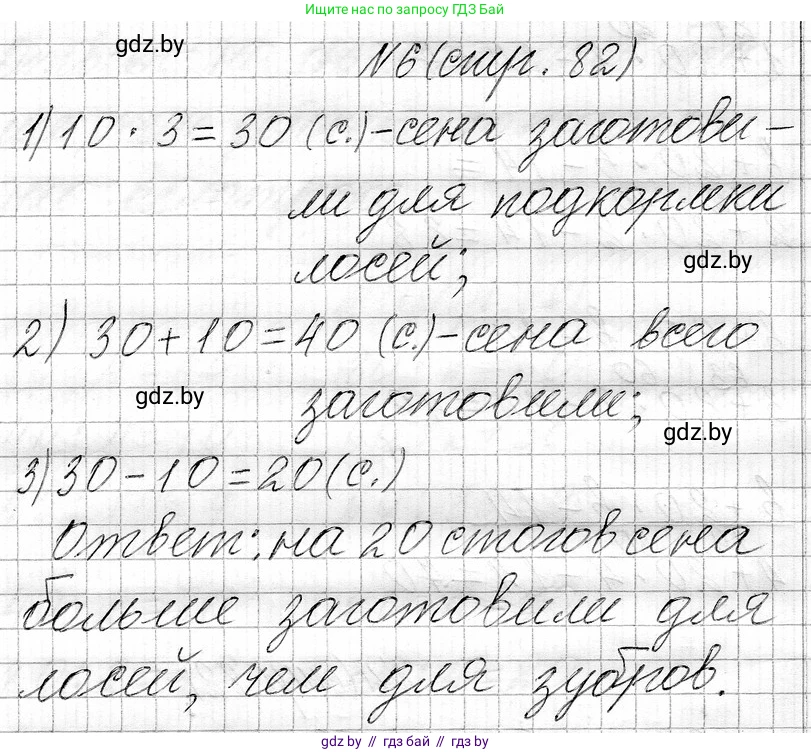 Ищите нас по запросу ГДЗ Бай
gdz.by
N6 (стр. 82)
1) 10 · 3 = 30 (с.) - сена заготови -
ли для подкормки
лосей;
gdz.by
2) 30 + 10 = 40 (с.) - сена всего
gdz.by
заготовили;
gdz.by
3) 30 - 10 = 20 (с.)
Ответ: на 20 стогов сена
больше заготовили для
лосей, чем для зубров.
gdz.by // гдз бай // гдз by